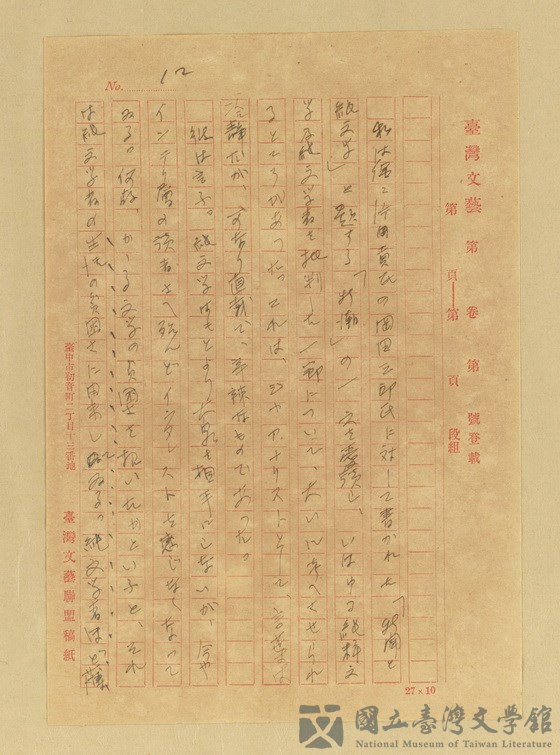 臺灣文藝 第 卷 第 號登載
第 頁——第 頁 段組
No. 12
私は偶々 氏の岡田三郎氏に対して書かれた「新聞と
純文学」と題する「新潮」の一文を愛読し、いはゆる純粋文
学及純文学者を批判した一節について、大いに考へさせられ
るところがあつた。それは、ジャアナリストとして、言葉は
冷静だが、可なり直截で、辛辣なものであつた。
彼は言ふ。純文学はもとより大衆を相手にしないが、今や
インテリ層の読者さへ殆んどインタレストを感じなくなつて
ゐる。何故、かゝる文学の貧困を招いたかといふと、それ
は純文学者の生活の貧困さに由来してゐる。純文学者は
臺中市初音町二丁目十三番地
臺灣文藝聯盟稿紙
27×10
國立臺灣文學館
National Museum of Taiwan Literature